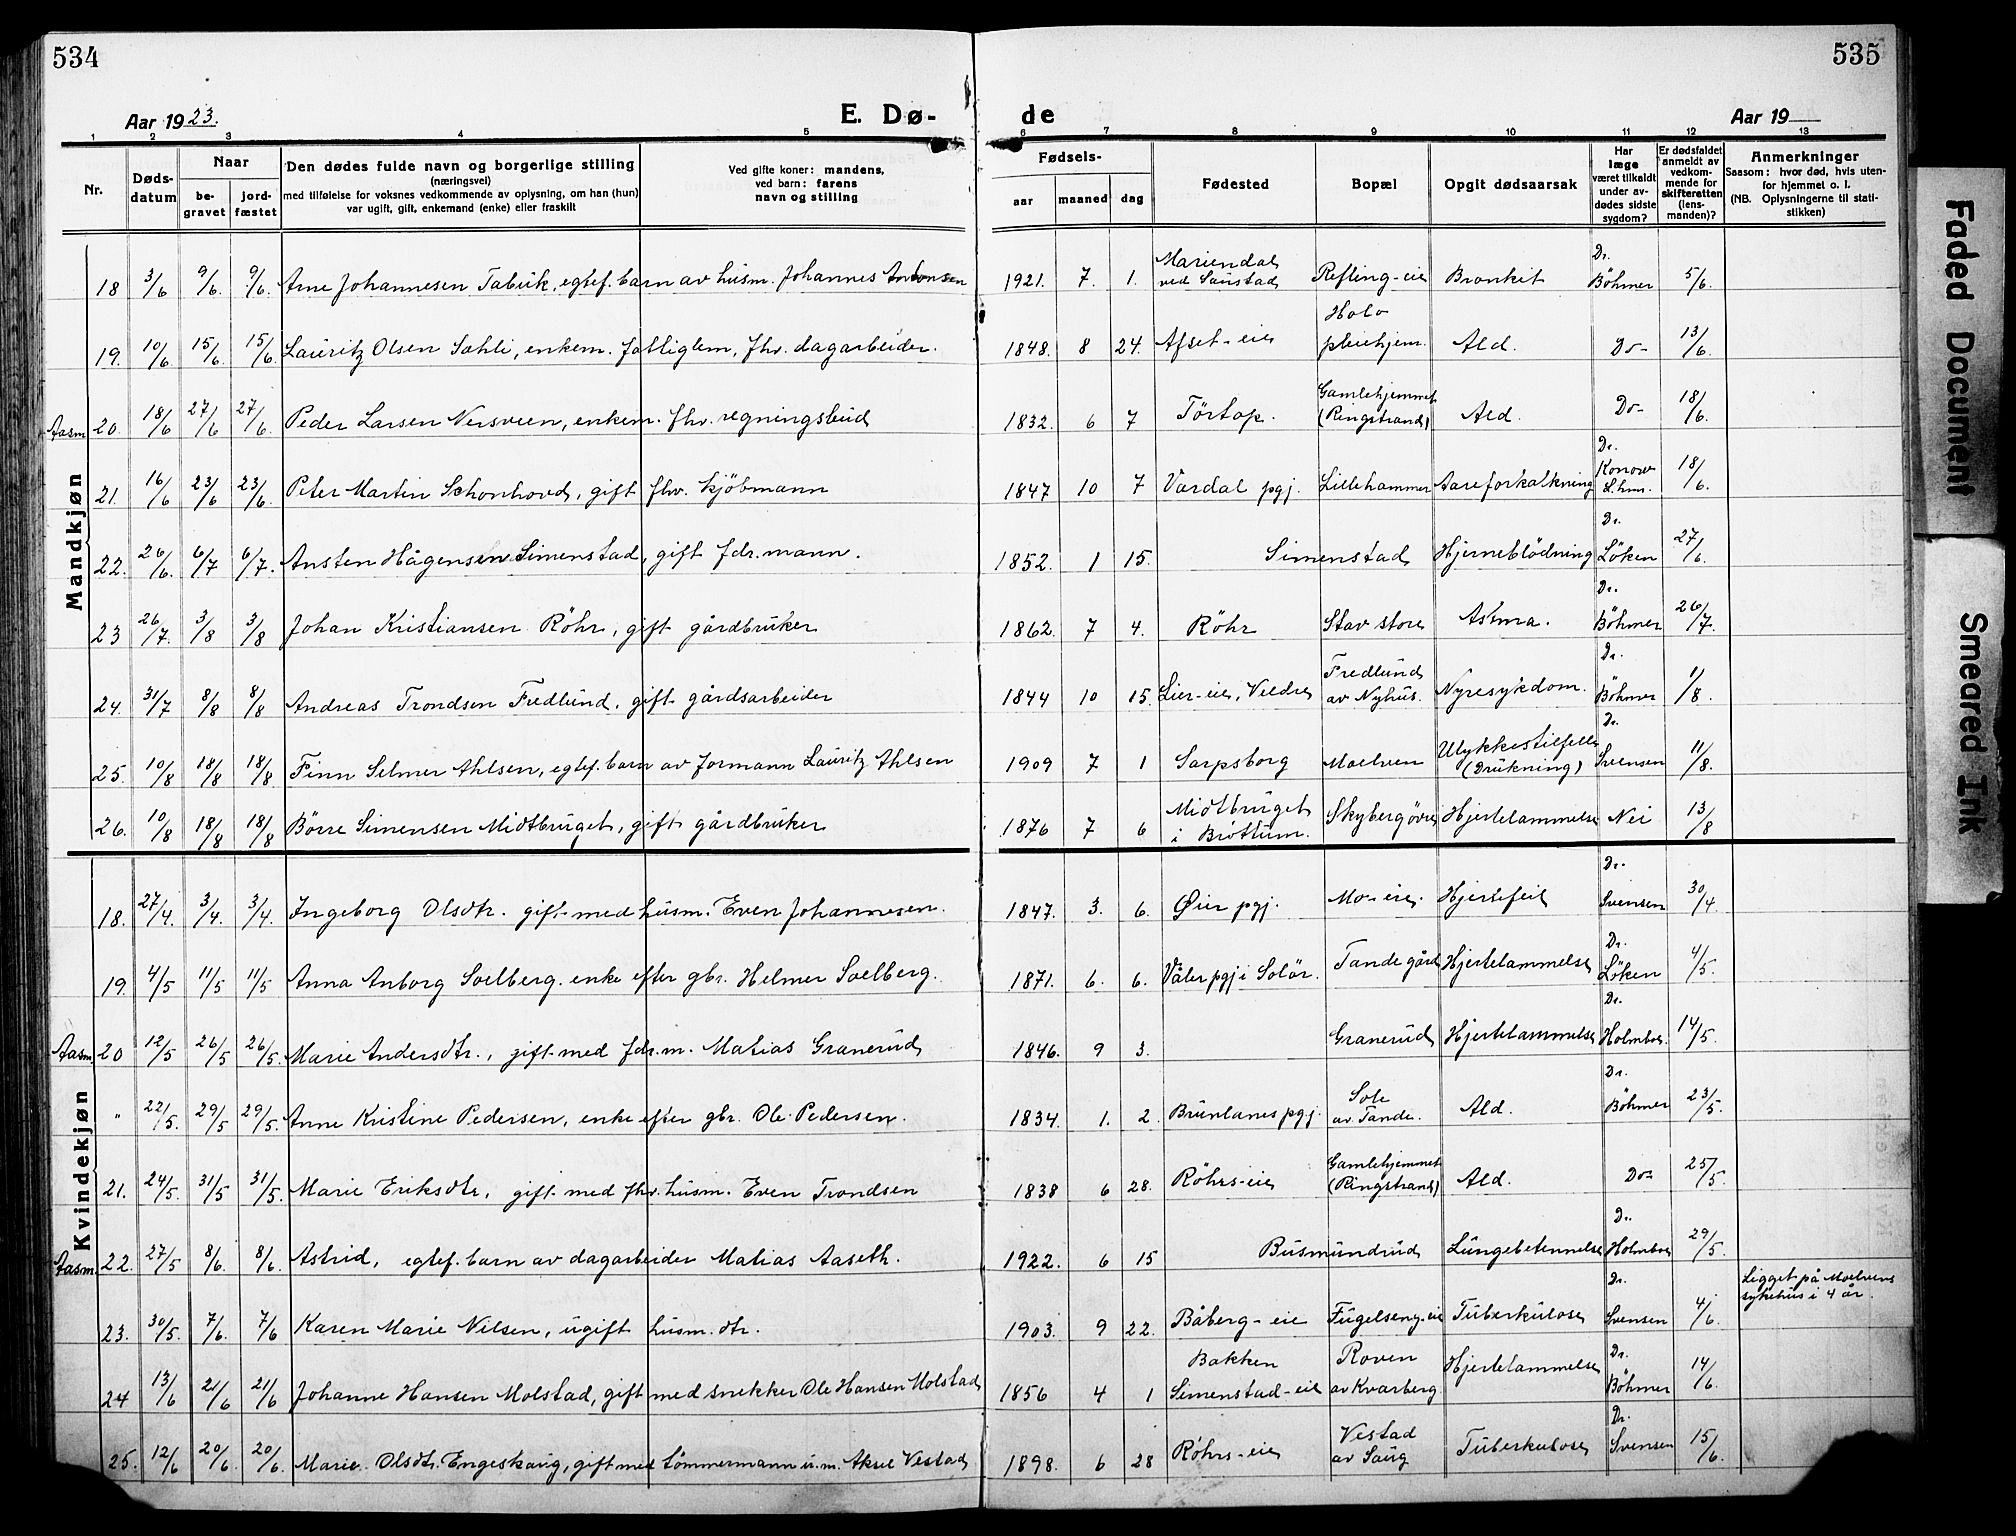 534
535
Aar 1923.
E. Dø-
de
Aar 19
1 2 3 4 5 6 7 8 9 10 11 12 13
Nr.
Døds-
datum
Naar
be-
gravet
jord-
fæstet
Den dødes fulde navn og borgerlige stilling
(næringsvei)
med tilføielse for voksnes vedkommende av oplysning, om han (hun)
var ugift, gift, enkemand (enke) eller fraskilt
Ved gifte koner: mandens,
ved barn: farens
navn og stilling
Fødsels-
aar
maaned
dag
Fødested
Bopæl
Opgit dødsaarsak
Har
læge
været tilkaldt
under av-
dødes sidste
sygdom?
Er dødsfaldet
anmeldt av
vedkom-
mende for
skifteretten
(lens-
manden)?
Anmerkninger
Saasom: hvor død, hvis uten-
for hjemmet o. l.
(NB. Oplysningerne til stati-
stikken)
Mandkjøn
18 3/6 9/6. 9/6. Arne Johannesen Tabuk, egtef. barn av husm. Johannes Antonsen 1921. 7. 1. Mariendal ved Saustad Refling-eie Bronkit Dr. Böhmer 5/6.
19. 10/6. 15/6. 15/6. Lauritz Olsen Sæhli, enkem. fattiglem, fhv. dagarbeider. 1848. 8 24. Afset-eie Holo pleiehjem. Ald. Do- 13/6.
Aasm 20. 18/6 27/6 27/6. Peder Larsen Nersveen, enkem. fhv. regningsbud 1832. 6 7 Törtop. Gamlehjemmet (Ringstrand) Ald. Do- 18/6.
21. 16/6 23/6 23/6. Peter Martin Schonhowd, gift fhv. kjöbmann 1847 10 7 Vardal pgj. Lillehammer Aareforkalkning Dr. Konow L.hmr. 18/6.
22. 26/6. 6/7 6/7. Ansten Hågensen Simenstad, gift fdr.mann. 1852. 1 15. Simenstad Hjerneblödning Dr. Löken 27/6.
23 26/7. 3/8 3/8 Johan Kristiansen Röhr, gift gårdbruker 1862. 7 4. Röhr Stav store Astma. Dr. Böhmer 26/7.
24. 31/7 8/8 8/8 Andreas Trondsen Fredlund, gift gårdsarbeider 1844 10 15. Lier-eie, Veldre Fredlund av Nyhus. Nyresykdom. Dr. Böhmer 1/8.
25. 10/8 18/8 18/8 Finn Selmer Ahlsen, egtef. barn av formann Lauritz Ahlsen 1909 7 1 Sarpsborg Moelven Ulykkestilfelle (Drukning) Dr. Svensen 11/8.
26. 10/8 18/8 18/8 Börre Simensen Midtbruget, gift gårdbruker 1876 7 6 Midtbruget i Brøttum. Skyberg övre Hjertelammelse Nei 13/8
Kvindekjøn
18. 27/4. 3/4. 3/4. Ingeborg Olsdtr. gift med husm. Even Johannesen. 1847. 3. 6. Øier pgj. Mo-eie. Hjertefeil Dr. Svensen 30/4
19. 4/5 11/5 11/5 Anna Anborg Soelberg. enke efter gbr. Helmer Soelberg. 1871. 6. 6. Våler pgj i Solör. Tande gård Hjertelammelse Dr. Löken 4/5.
Aasm. 20 12/5 26/5 26/5. Marie Andersdtr., gift med fdr.m. Matias Granerud 1846. 9 3. Granerud Hjertelammelse Dr. Holmboe. 14/5.
" 22/5. 29/5 29/5. Anne Kristine Pedersen, enke efter gbr. Ole Pedersen. 1834. 1. 2. Brunlanes pgj. Sole av Tande. Ald. Dr. Böhmer 23/5.
21. 24/5. 31/5 31/5. Marie Eriksdtr, gift med fhv. husm. Even Trondsen 1838 6 28. Röhrs-eie Gamlehjemmet (Ringstrand) Ald. Do- 25/5.
Aasm. 22. 27/5 8/6. 8/6. Astrid, egtef. barn av dagarbeider Matias Aaseth. 1922. 6 15 Busmundrud Lungebetennelse Dr. Holmboe 29/5.
23. 30/5. 7/6. 7/6 Karen Marie Nilsen, ugift husm. dtr. 1903. 9 22. Båberg-eie Fugelseng-eie Tuberkulose Dr. Svensen 4/6 Ligget på Moelvens sykehus i 4 år.
24 13/6 21/6 21/6 Johanne Hansen Molstad, gift med snekker Ole Hansen Molstad 1856 4 1 Bakken Simenstad-eie Roven av Kvarberg. Hjertelammelse Dr. Böhmer 14/6.
25. 12/6 20/6 20/6. Marie Olsdtr. Engeskaug, gift med tömmermann u.m. Aksel Vestad 1898. 6 28 Röhrs-eie Vestad av Saug Tuberkulose Dr. Svensen 15/6.
Faded Document
Smeared Ink